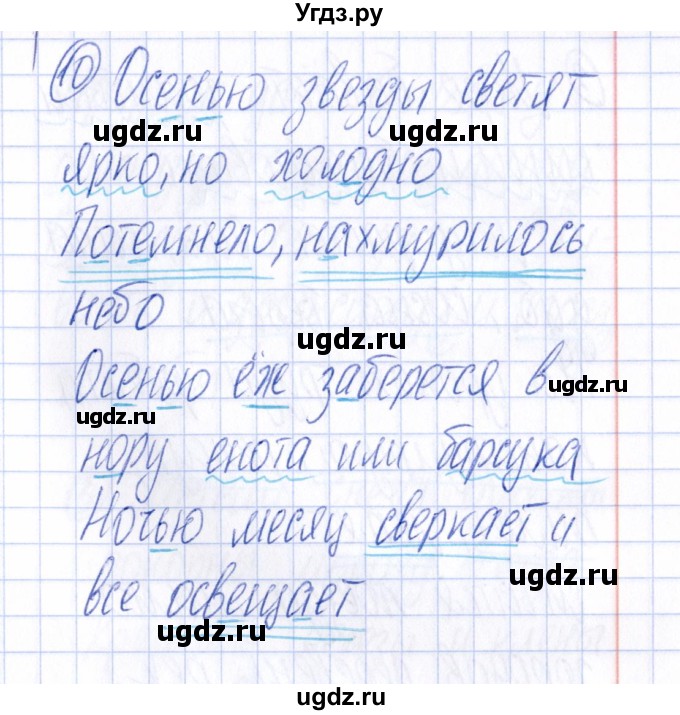 Угдз.ру
10 Осенью звезды светят
ugdz.ru ugdz.ru
ярко, но холодно
Потемнело, нахмурилось
небо
ugdz.ru
Осенью ёж заберется в
ugdz.ru
ugdz.ru
нору енота или барсука
Ночью месяц сверкает и
ugdz.ru
все освещает
ugdz.ru
ugdz.ru